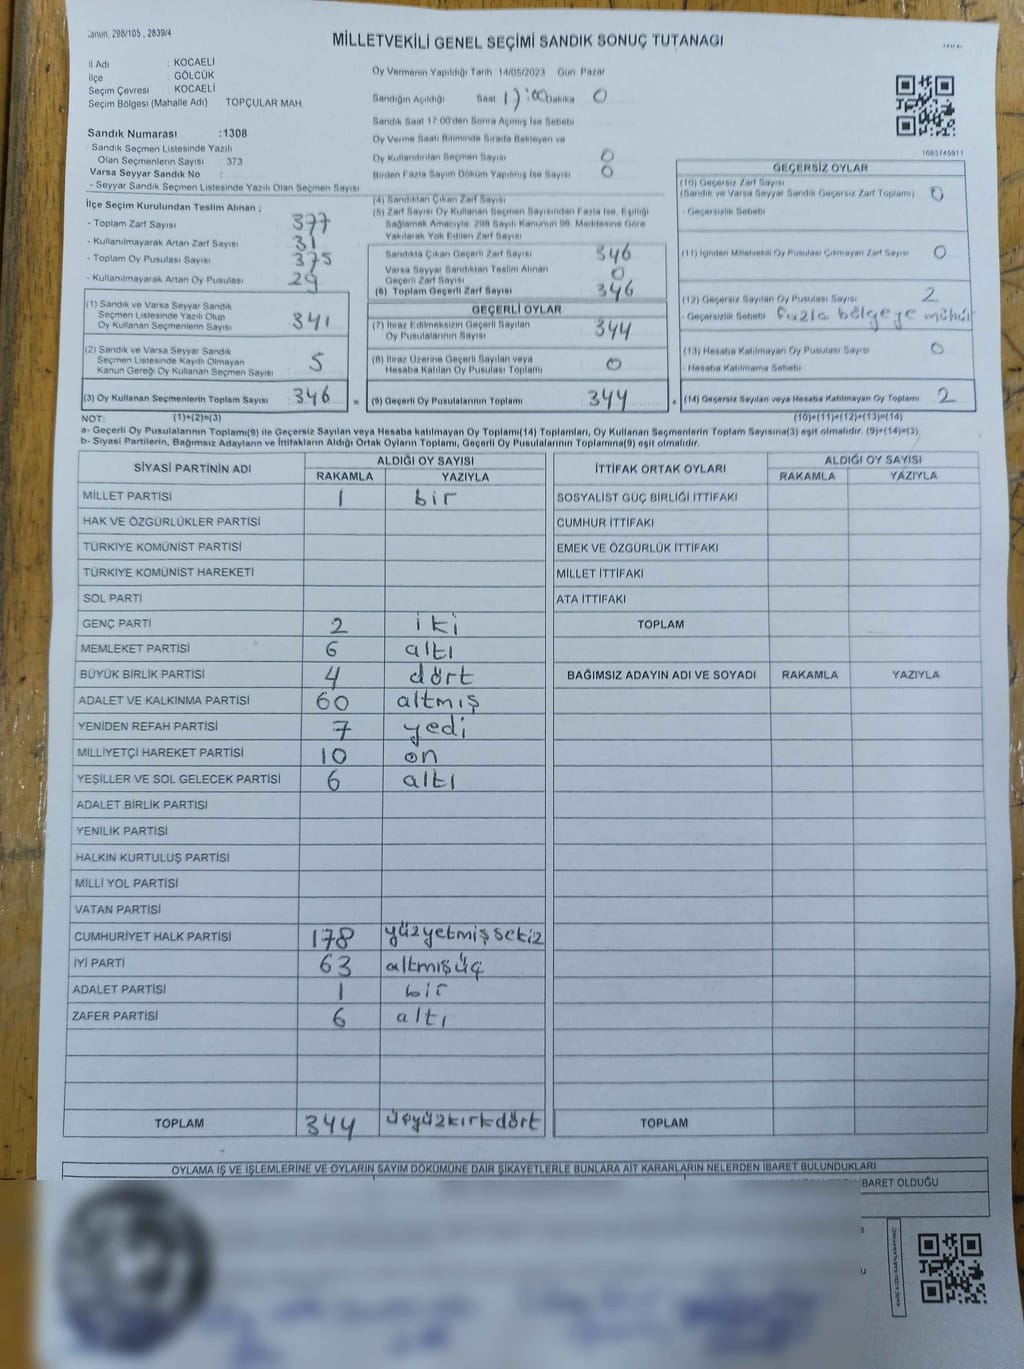 Kanun, 298/105, 2839/4
MİLLETVEKİLİ GENEL SEÇİMİ SANDIK SONUÇ TUTANAĞI
İl Adı : KOCAELİ
İlçe : GÖLCÜK
Seçim Çevresi : KOCAELİ
Seçim Bölgesi (Mahalle Adı) TOPÇULAR MAH.
Sandık Numarası :1308
- Sandık Seçmen Listesinde Yazılı
Olan Seçmenlerin Sayısı 373
Varsa Seyyar Sandık No :
- Seyyar Sandık Seçmen Listesinde Yazılı Olan Seçmen Sayısı
Oy Vermenin Yapıldığı Tarih 14/05/2023 Gün Pazar
Sandığın Açıldığı Saat 17:00 Dakika 0
Sandık Saat 17:00'den Sonra Açılmış İse Sebebi
Oy Verme Saati Bitiminde Sırada Bekleyen ve
Oy Kullandırılan Seçmen Sayısı 0
Birden Fazla Sayım Döküm Yapılmış İse Sayısı 0
1663745911
İlçe Seçim Kurulundan Teslim Alınan ;
- Toplam Zarf Sayısı 377
- Kullanılmayarak Artan Zarf Sayısı 31
- Toplam Oy Pusulası Sayısı 375
- Kullanılmayarak Artan Oy Pusulası 29
(1) Sandık ve Varsa Seyyar Sandık
Seçmen Listesinde Yazılı Olup
Oy Kullanan Seçmenlerin Sayısı 341
(2) Sandık ve Varsa Seyyar Sandık
Seçmen Listesinde Kayıtlı Olmayan
Kanun Gereği Oy Kullanan Seçmen Sayısı 5
(3) Oy Kullanan Seçmenlerin Toplam Sayısı 346 =
(4) Sandıktan Çıkan Zarf Sayısı
(5) Zarf Sayısı Oy Kullanan Seçmen Sayısından Fazla İse, Eşitliği
Sağlamak Amacıyla, 298 Sayılı Kanunun 98. Maddesine Göre
Yakılarak Yok Edilen Zarf Sayısı
Sandıkta Çıkan Geçerli Zarf Sayısı 346
Varsa Seyyar Sandıktan Teslim Alınan
Geçerli Zarf Sayısı 0
(6) Toplam Geçerli Zarf Sayısı 346
GEÇERLİ OYLAR
(7) İtiraz Edilmeksizin Geçerli Sayılan
Oy Pusulalarının Sayısı 344
(8) İtiraz Üzerine Geçerli Sayılan veya
Hesaba Katılan Oy Pusulası Toplamı 0
(9) Geçerli Oy Pusulasının Toplamı 344 +
GEÇERSİZ OYLAR
(10) Geçersiz Zarf Sayısı
(Sandık ve Varsa Seyyar Sandık Geçersiz Zarf Toplamı) 0
- Geçersizlik Sebebi
(11) İçinden Milletvekili Oy Pusulası Çıkmayan Zarf Sayısı 0
(12) Geçersiz Sayılan Oy Pusulası Sayısı 2
- Geçersizlik Sebebi fazla bölgeye mühür
(13) Hesaba Katılmayan Oy Pusulası Sayısı 0
- Hesaba Katılmama Sebebi
(14) Geçersiz Sayılan veya Hesaba Katılmayan Oy Toplamı 2
NOT: (1)+(2)=(3) (10)+(11)+(12)+(13)=(14)
a- Geçerli Oy Pusulalarının Toplamı(9) ile Geçersiz Sayılan veya Hesaba katılmayan Oy Toplamı(14) Toplamları, Oy Kullanan Seçmenlerin Toplam Sayısına(3) eşit olmalıdır. (9)+(14)=(3)
b- Siyasi Partilerin, Bağımsız Adayların ve İttifakların Aldığı Ortak Oyların Toplamı, Geçerli Oy Pusulalarının Toplamına(9) eşit olmalıdır.
SİYASİ PARTİNİN ADI ALDIĞI OY SAYISI
RAKAMLA YAZIYLA
MİLLET PARTİSİ 1 bir
HAK VE ÖZGÜRLÜKLER PARTİSİ
TÜRKİYE KOMÜNİST PARTİSİ
TÜRKİYE KOMÜNİST HAREKETİ
SOL PARTİ
GENÇ PARTİ 2 iki
MEMLEKET PARTİSİ 6 altı
BÜYÜK BİRLİK PARTİSİ 4 dört
ADALET VE KALKINMA PARTİSİ 60 altmış
YENİDEN REFAH PARTİSİ 7 yedi
MİLLİYETÇİ HAREKET PARTİSİ 10 on
YEŞİLLER VE SOL GELECEK PARTİSİ 6 altı
ADALET BİRLİK PARTİSİ
YENİLİK PARTİSİ
HALKIN KURTULUŞ PARTİSİ
MİLLİ YOL PARTİSİ
VATAN PARTİSİ
CUMHURİYET HALK PARTİSİ 178 yüzyetmişsekiz
İYİ PARTİ 63 altmışüç
ADALET PARTİSİ 1 bir
ZAFER PARTİSİ 6 altı
TOPLAM 344 üçyüzkırkdört
İTTİFAK ORTAK OYLARI ALDIĞI OY SAYISI
RAKAMLA YAZIYLA
SOSYALİST GÜÇ BİRLİĞİ İTTİFAKI
CUMHUR İTTİFAKI
EMEK VE ÖZGÜRLÜK İTTİFAKI
MİLLET İTTİFAKI
ATA İTTİFAKI
TOPLAM
BAĞIMSIZ ADAYIN ADI VE SOYADI RAKAMLA YAZIYLA
TOPLAM
OYLAMA İŞ VE İŞLEMLERİNE VE OYLARIN SAYIM DÖKÜMÜNE DAİR ŞİKAYETLERLE BUNLARA AİT KARARLARIN NELERDEN İBARET BULUNDUKLARI
BARET OLDUĞU